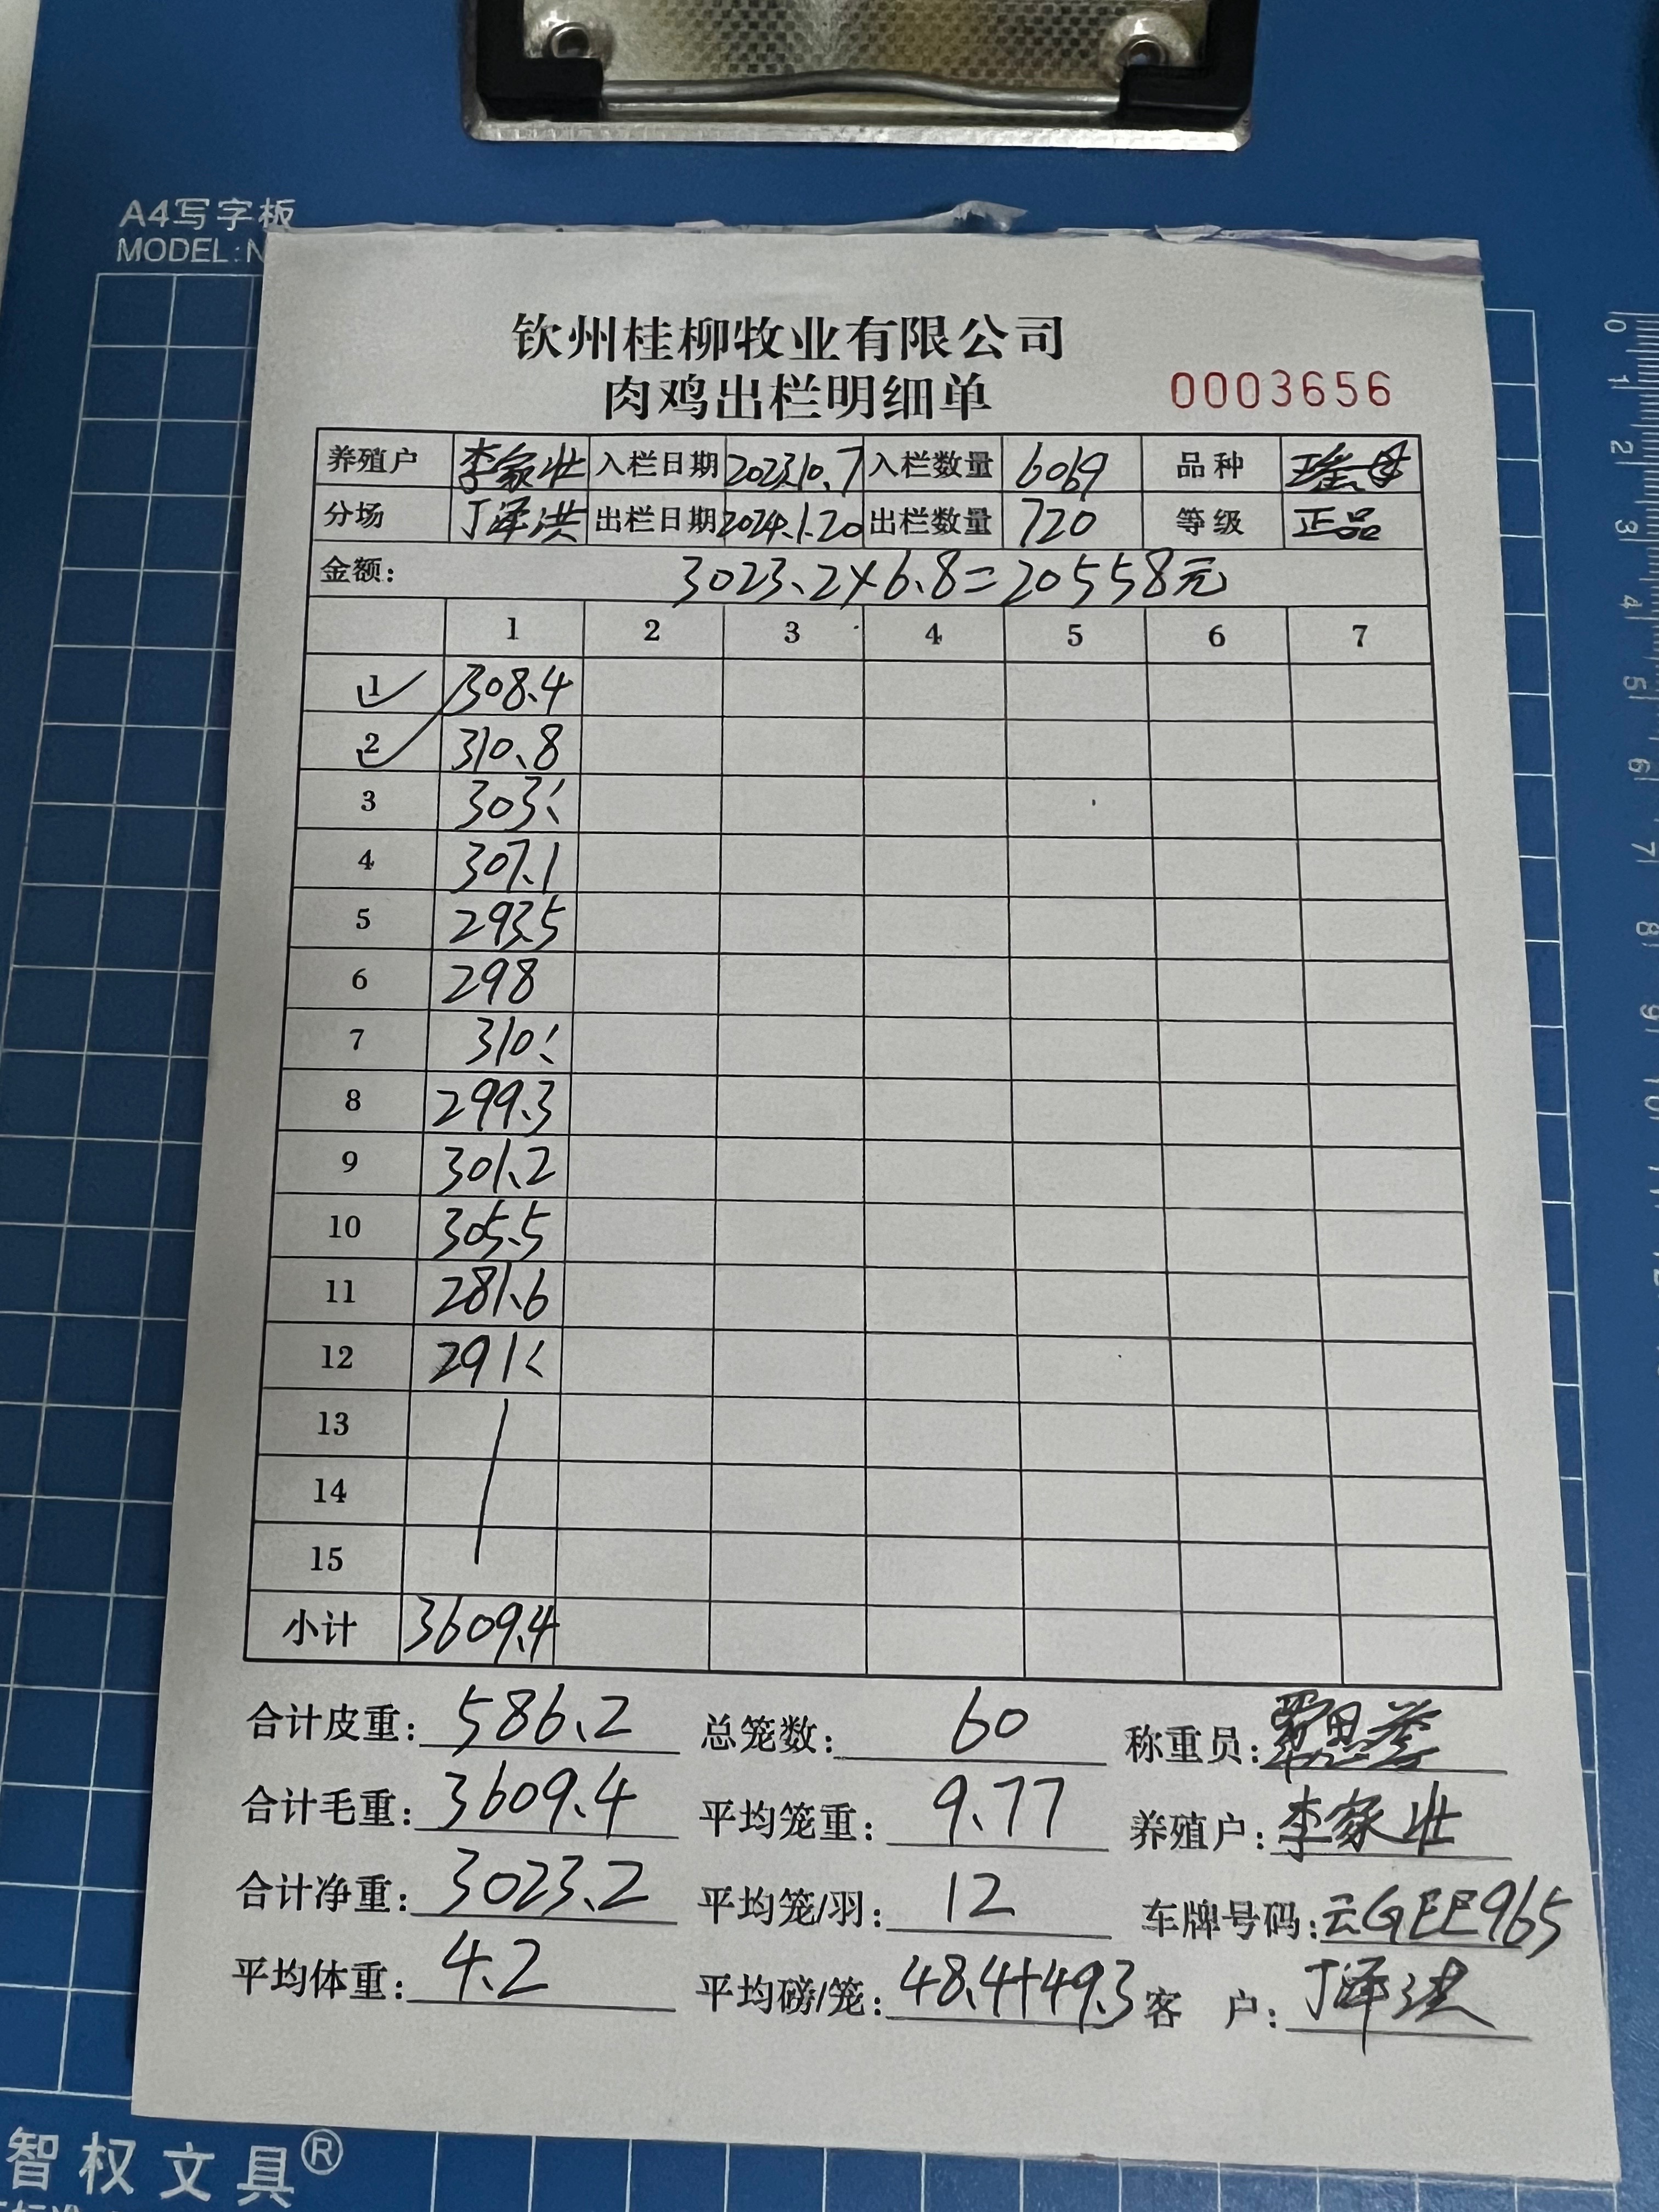 A4写字板
MODEL:N
钦州桂柳牧业有限公司
肉鸡出栏明细单 0003656
养殖户 李家壮 入栏日期 2023.10.7 入栏数量 6069 品种
分场 丁泽洪 出栏日期 2024.1.20 出栏数量 720 等级 正品
金额: 3023.2×6.8=20558元
1 2 3 4 5 6 7
1 308.4
2 310.8
3
4 307.1
5 293.5
6 298
7
8 299.3
9 301.2
10 305.5
11 281.6
12
13
14
15
小计 3609.4
合计皮重: 586.2 总笼数: 60 称重员:
合计毛重: 3609.4 平均笼重: 9.77 养殖户: 李家壮
合计净重: 3023.2 平均笼/羽: 12 车牌号码: 云GEE965
平均体重: 4.2 平均磅/笼: 48.4+49.3 客 户: 丁泽洪
智权文具®
0 1 2 3 4 5 6 7 8 9 10